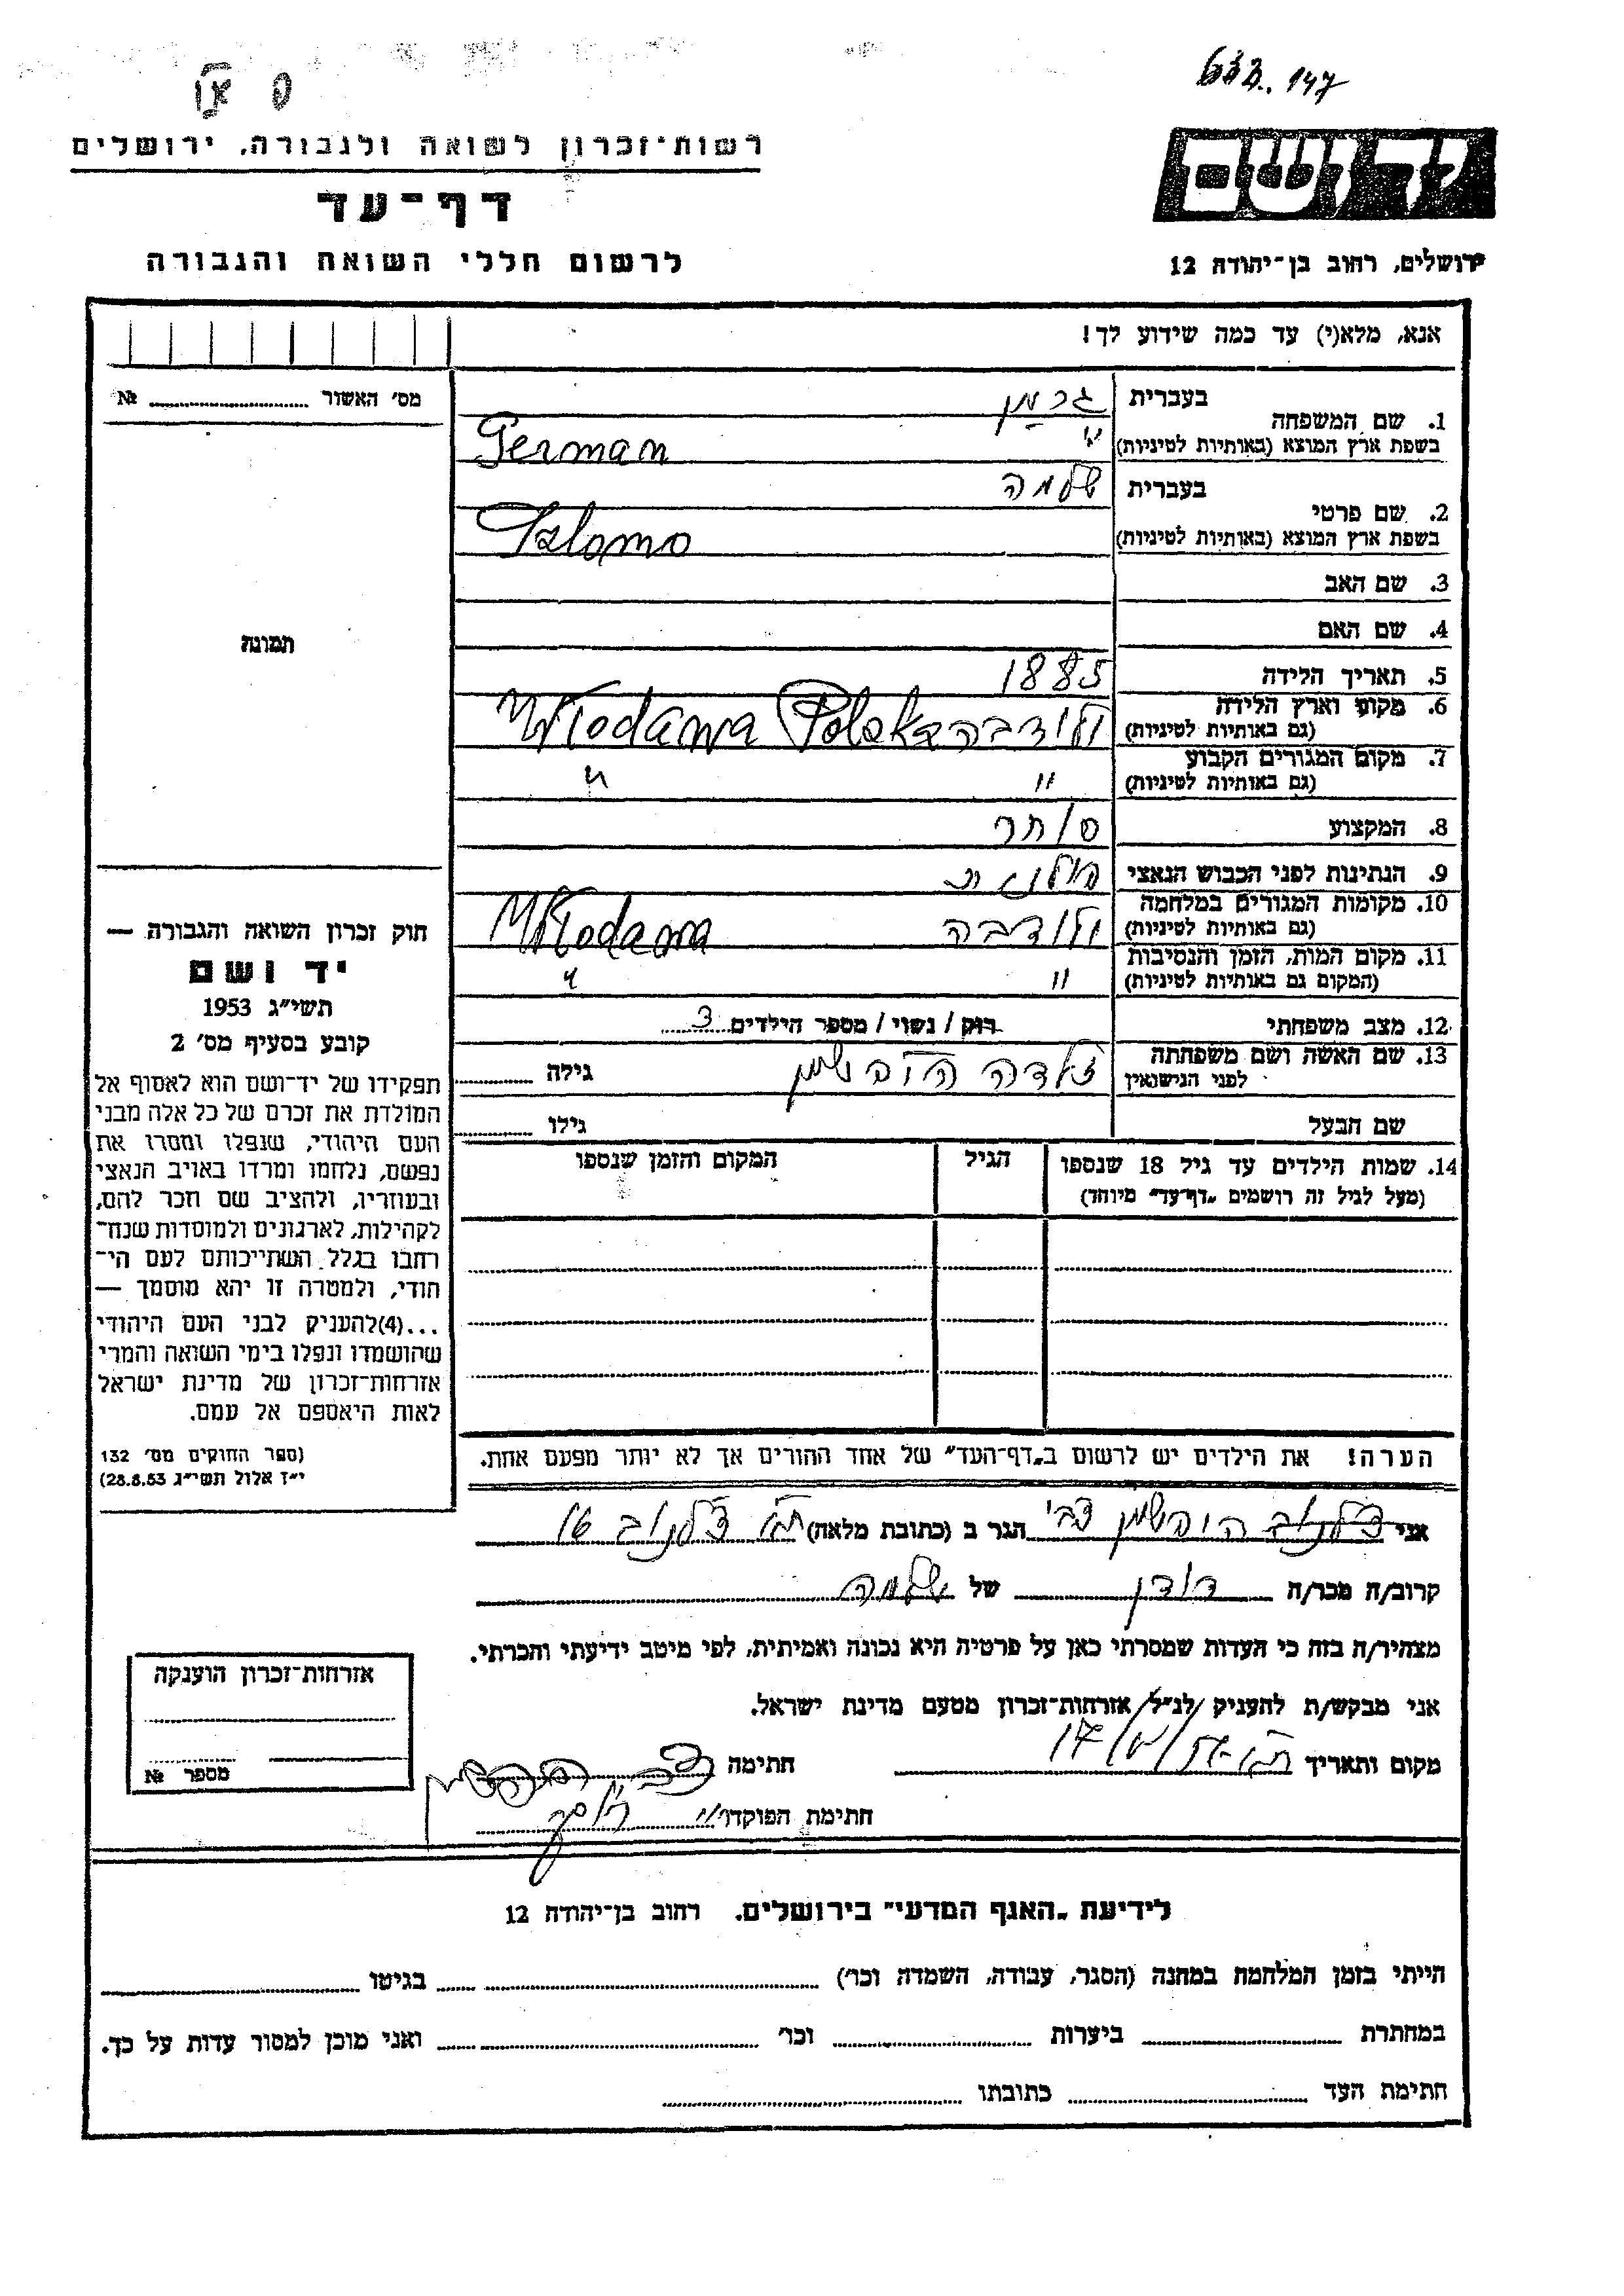 633.. 147
רשות-זכרון לשואה ולגבורה, ירושלים
יד ושם
דף-עד
לרשום חללי השואה והגבורה
ירושלים, רחוב בן-יהודה 12
אנא, מלא(י) עד כמה שידוע לך!
מס׳ האשור ............ №
1. שם המשפחה בעברית גרמן
בשפת ארץ המוצא (באותיות לטיניות) German
2. שם פרטי בעברית שלמה
בשפת ארץ המוצא (באותיות לטיניות) Szlomo
3. שם האב
4. שם האם
5. תאריך הלידה 1885
6. מקום וארץ הלידה
(גם באותיות לטיניות) ולודבה Włodawa Polska
7. מקום המגורים הקבוע
(גם באותיות לטיניות) " "
8. המקצוע סוחר
9. הנתינות לפני הכבוש הנאצי
10. מקומות המגורים במלחמה
(גם באותיות לטיניות) ולודבה Włodawa
11. מקום המות, הזמן והנסיבות
(המקום גם באותיות לטיניות) " "
12. מצב משפחתי רוק / נשוי / מספר הילדים 3
13. שם האשה ושם משפחתה
לפני הנישואין זלדה הוכשמן גילה ............
שם הבעל גילו ............
14. שמות הילדים עד גיל 18 שנספו הגיל המקום והזמן שנספו
(מעל לגיל זה רושמים „דף-עד" מיוחד)
הערה! את הילדים יש לרשום ב„דף-העד" של אחד ההורים אך לא יותר מפעם אחת.
תמונה
חוק זכרון השואה והגבורה —
יד ושם
תשי״ג 1953
קובע בסעיף מס׳ 2
תפקידו של יד-ושם הוא לאסוף אל
המולדת את זכרם של כל אלה מבני
העם היהודי, שנפלו ומסרו את
נפשם, נלחמו ומרדו באויב הנאצי
ובעוזריו, ולהציב שם וזכר להם,
לקהילות, לארגונים ולמוסדות שנח-
רבו בגלל השתייכותם לעם הי-
הודי, ולמטרה זו יהא מוסמך —
...(4)להעניק לבני העם היהודי
שהושמדו ונפלו בימי השואה והמרי
אזרחות-זכרון של מדינת ישראל
לאות היאספם אל עמם.
(ספר החוקים מס׳ 132
י״ז אלול תשי״ג 28.8.53)
אני הוכשמן צבי הגר ב (כתובת מלאה) ת״א צ׳לנוב 16
קרוב/ה מכר/ה דודן של שלמה
מצהיר/ה בזה כי העדות שמסרתי כאן על פרטיה היא נכונה ואמיתית, לפי מיטב ידיעתי והכרתי.
אני מבקש/ת להעניק לנ״ל אזרחות-זכרון מטעם מדינת ישראל.
מקום ותאריך חתימה
חתימת הפוקד/ו/י
אזרחות-זכרון הוענקה
מספר №
לידיעת „האגף המדעי" בירושלים, רחוב בן-יהודה 12
הייתי בזמן המלחמה במחנה (הסגר, עבודה, השמדה וכו׳) ............ בגיטו ............
במחתרת ............ ביערות ............ וכו׳ ............ ואני מוכן למסור עדות על כך.
חתימת העד ............ כתובתו ............